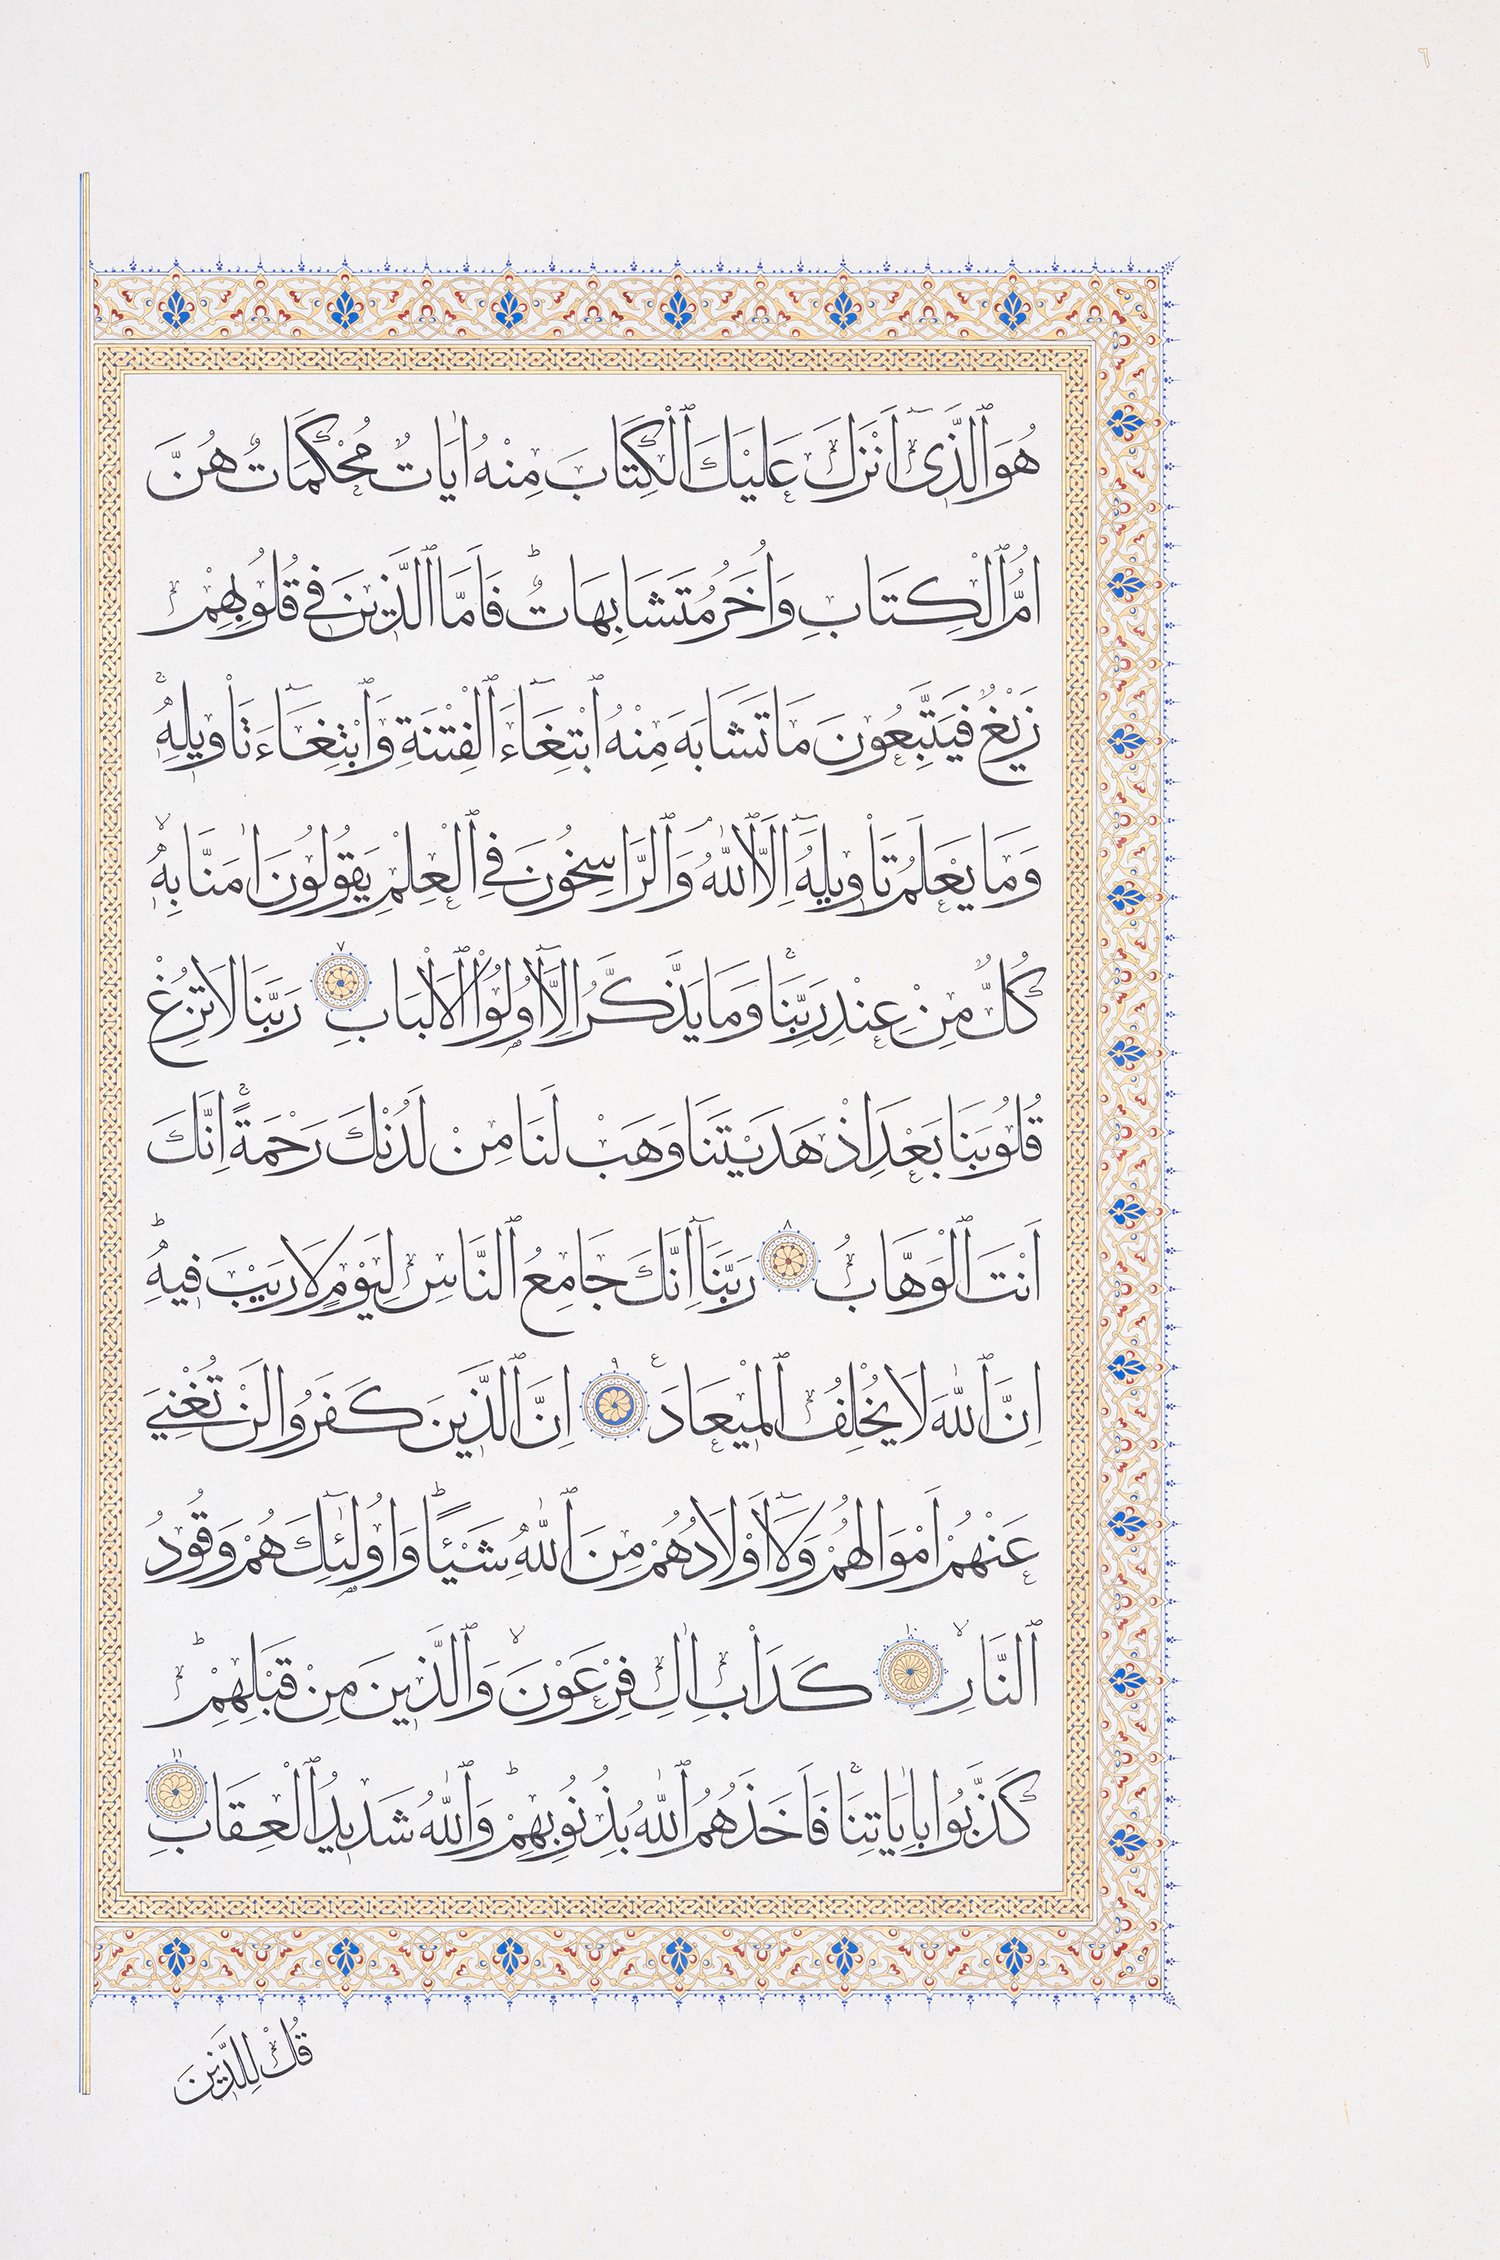 ٦
هُوَ ٱلَّذٖٓى اَنْزَلَ عَلَيْكَ ٱلْكِتَابَ مِنْهُ اٰيَاتٌ مُحْكَمَاتٌ هُنَّ
اُمُّ ٱلْكِتَابِ وَاُخَرُ مُتَشَابِهَاتٌؕ فَاَمَّا ٱلَّذٖينَ فٖى قُلُوبِهِمْ
زَيْغٌ فَيَتَّبِعُونَ مَا تَشَابَهَ مِنْهُ ٱبْتِغَٓاءَ ٱلْفِتْنَةِ وَٱبْتِغَٓاءَ تَاْوٖيلِهٖۚ
وَمَا يَعْلَمُ تَاْوٖيلَهُٓ اِلَّا ٱللّٰهُۘ وَٱلرَّاسِخُونَ فِى ٱلْعِلْمِ يَقُولُونَ اٰمَنَّا بِهٖۙ
كُلٌّ مِنْ عِنْدِ رَبِّنَاۚ وَمَا يَذَّكَّرُ اِلَّٓا اُو۬لُوا ٱلْاَلْبَابِ ٧ رَبَّنَا لَا تُزِغْ
قُلُوبَنَا بَعْدَ اِذْ هَدَيْتَنَا وَهَبْ لَنَا مِنْ لَدُنْكَ رَحْمَةًۚ اِنَّكَ
اَنْتَ ٱلْوَهَّابُ ٨ رَبَّنَٓا اِنَّكَ جَامِعُ ٱلنَّاسِ لِيَوْمٍ لَا رَيْبَ فٖيهِؕ
اِنَّ ٱللّٰهَ لَا يُخْلِفُ ٱلْمٖيعَادَࣖ ٩ اِنَّ ٱلَّذٖينَ كَفَرُوا لَنْ تُغْنِىَ
عَنْهُمْ اَمْوَالُهُمْ وَلَٓا اَوْلَادُهُمْ مِنَ ٱللّٰهِ شَيْـًٔاؕ وَاُو۬لٰٓئِكَ هُمْ وَقُودُ
ٱلنَّارِۙ ١٠ كَدَاْبِ اٰلِ فِرْعَوْنَۙ وَٱلَّذٖينَ مِنْ قَبْلِهِمْؕ
كَذَّبُوا بِاٰيَاتِنَاۚ فَاَخَذَهُمُ ٱللّٰهُ بِذُنُوبِهِمْؕ وَٱللّٰهُ شَدٖيدُ ٱلْعِقَابِ ١١
قُلْ لِلَّذٖينَ